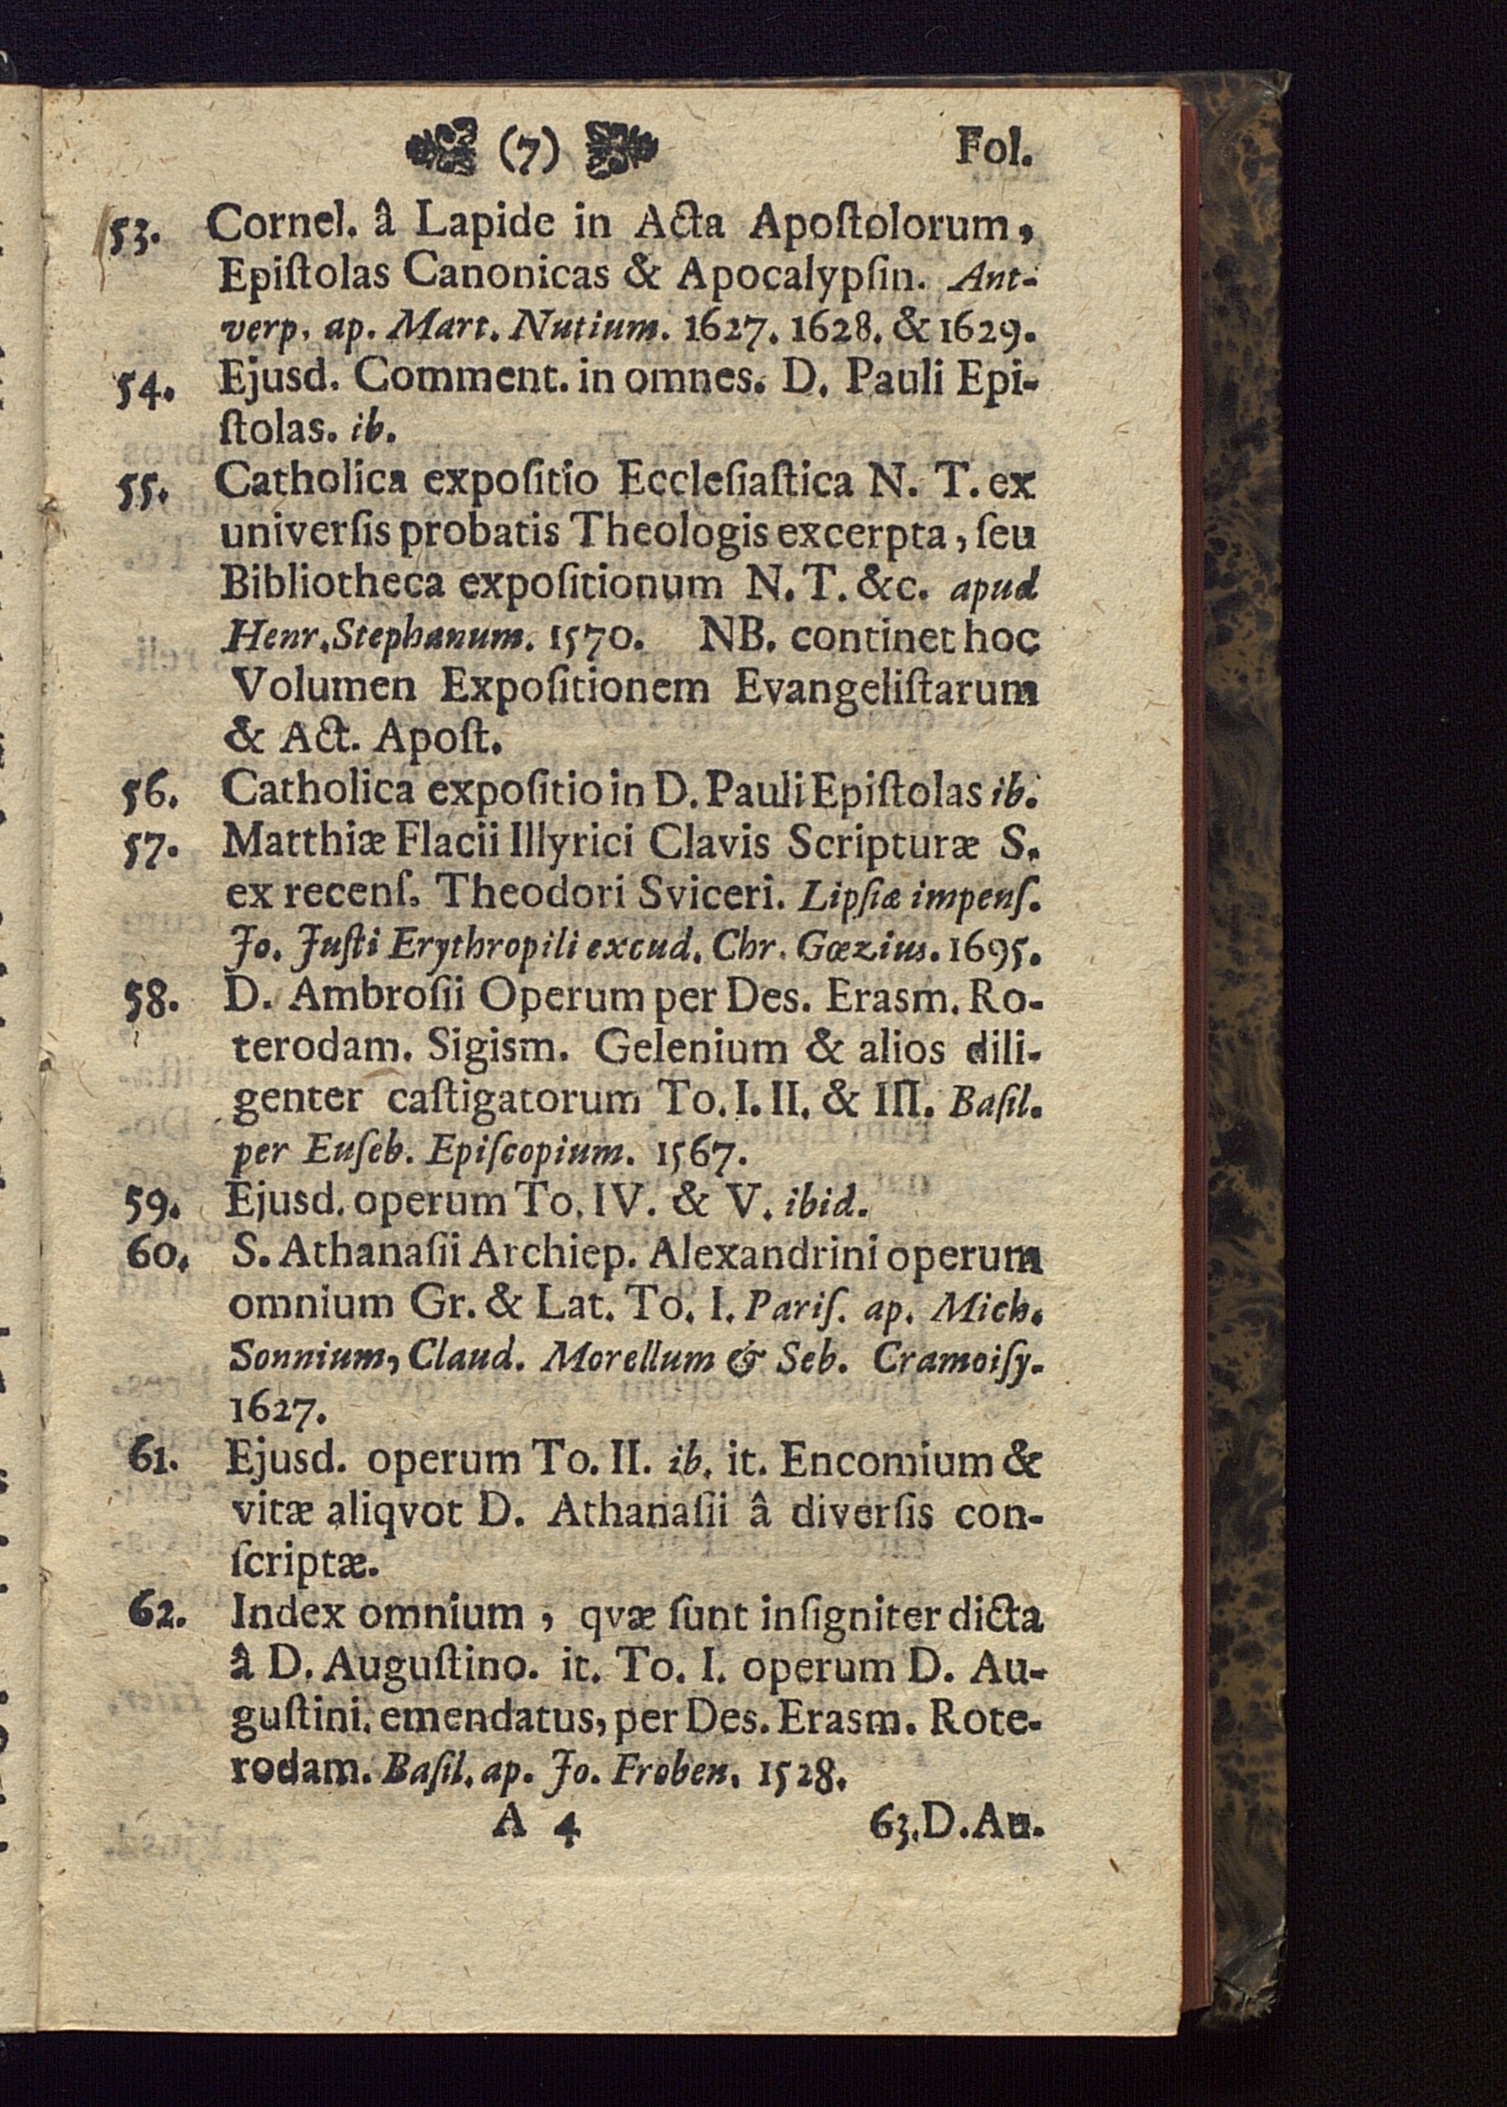 (7) Fol.
53. Cornel. â Lapide in Acta Apoſtolorum,
Epiſtolas Canonicas & Apocalypſin. Ant-
verp. ap. Mart. Nutium. 1627. 1628. & 1629.
54. Ejusd. Comment. in omnes. D. Pauli Epi-
ſtolas. ib.
55. Catholica expoſitio Eccleſiaſtica N. T. ex
univerſis probatis Theologis excerpta, ſeu
Bibliotheca expoſitionum N. T. &c. apud
Henr. Stephanum. 1570. NB. continet hoc
Volumen Expoſitionem Evangeliſtarum
& Act. Apoſt.
56. Catholica expoſitio in D. Pauli Epiſtolas ib.
57. Matthiæ Flacii Illyrici Clavis Scripturæ S.
ex recenſ. Theodori Sviceri. Lipſiæ impenſ.
Jo. Juſti Erythropili excud. Chr. Gœzius. 1695.
58. D. Ambroſii Operum per Des. Erasm. Ro-
terodam. Sigism. Gelenium & alios dili-
genter caſtigatorum To. I. II. & III. Baſil.
per Euſeb. Epiſcopium. 1567.
59. Ejusd. operum To. IV. & V. ibid.
60. S. Athanaſii Archiep. Alexandrini operum
omnium Gr. & Lat. To. I. Pariſ. ap. Mich.
Sonnium, Claud. Morellum & Seb. Cramoiſy.
1627.
61. Ejusd. operum To. II. ib. it. Encomium &
vitæ aliqvot D. Athanaſii â diverſis con-
ſcriptæ.
62. Index omnium, qvæ ſunt inſigniter dicta
â D. Auguſtino. it. To. I. operum D. Au-
guſtini. emendatus, per Des. Erasm. Rote-
rodam. Baſil. ap. Jo. Froben. 1528.
A 4 63. D. Au.